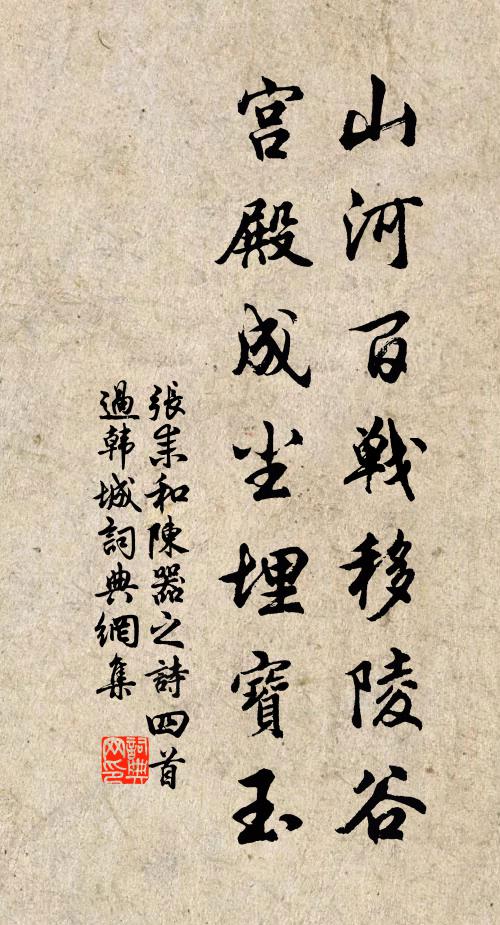 山河百戰移陵谷
宫殿成尘埋寶玉
張耒和陳器之詩四首
過韩城詞典網集
詞典
网印